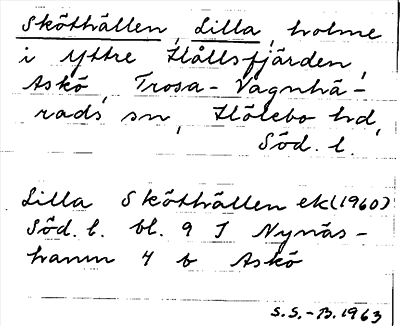 Sköthällen, Lilla, holme
i yttre Hållsfjärden,
Askö, Trosa-Vagnhä-
rads sn, Hölebo hd,
Söd. l.
Lilla Sköthällen ek(1960)
Söd. l. bl. 9 I Nynäs-
hamn 4 b Askö
S.S.-B. 1963